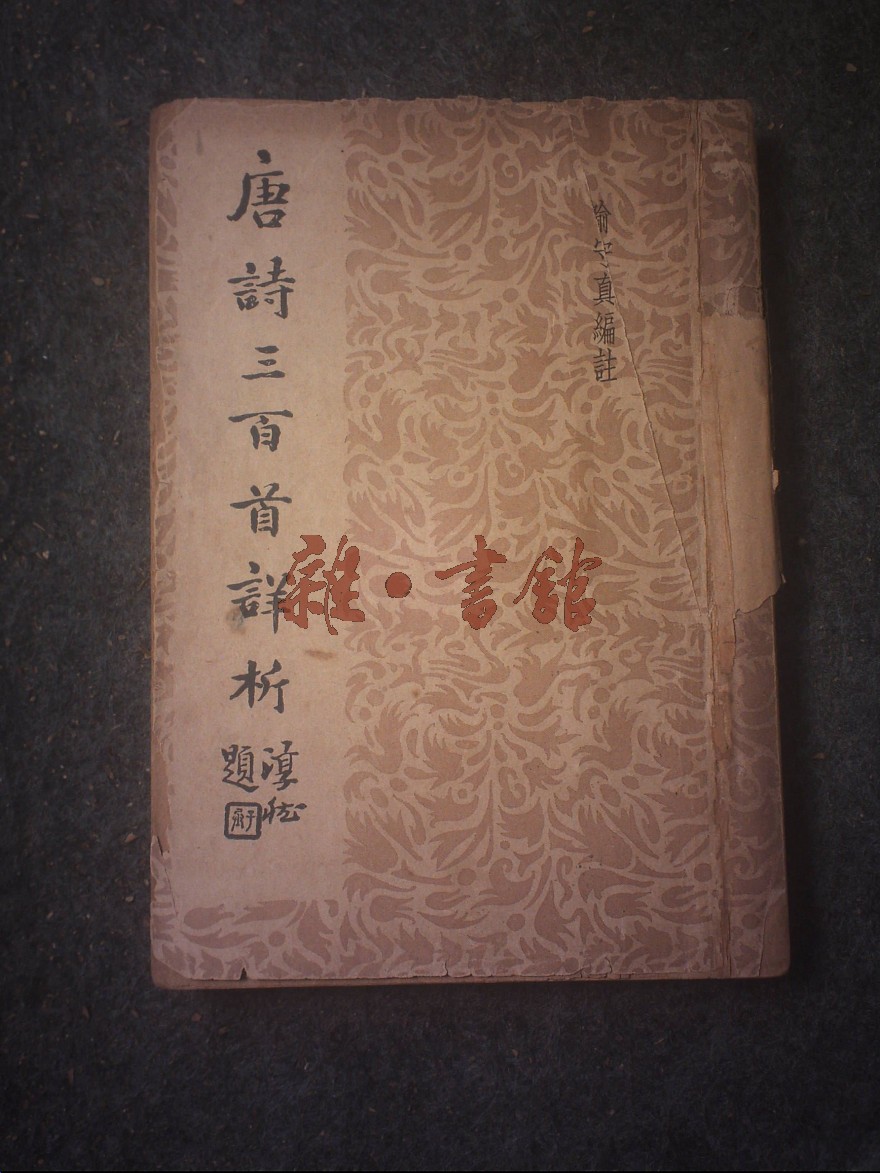 喻守真編註
唐詩三百首詳析
題
雜·書館